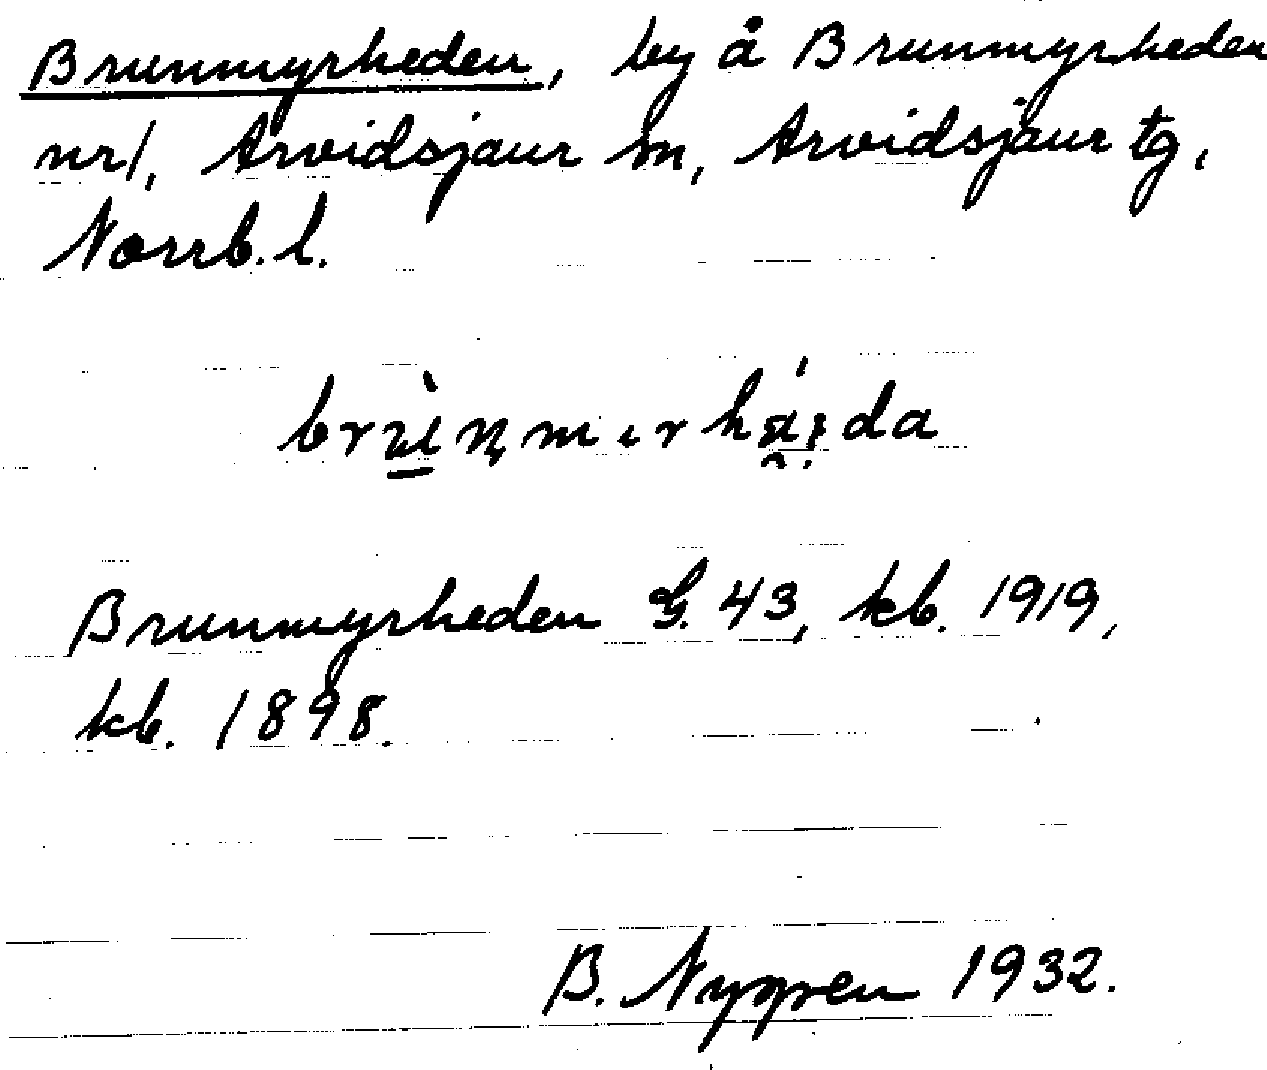 Brunmyrheden, by å Brunmyrheden
nr 1, Arvidsjaur sn, Arvidsjaur tg,
Norrb. l.
Brunmyrheden G. 43, kb. 1919,
kb. 1898.
B. Nygren 1932.